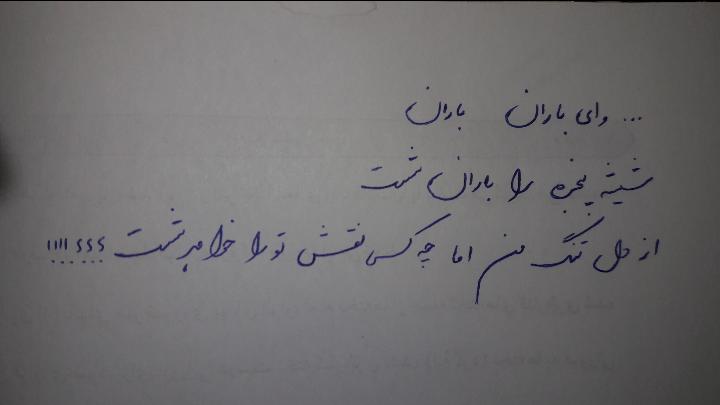 ... وای باران باران
شیشه پنجره را باران شست
از دل تنگ من اما چه کسی نقش تو را خواهد شست ؟؟؟!!!!